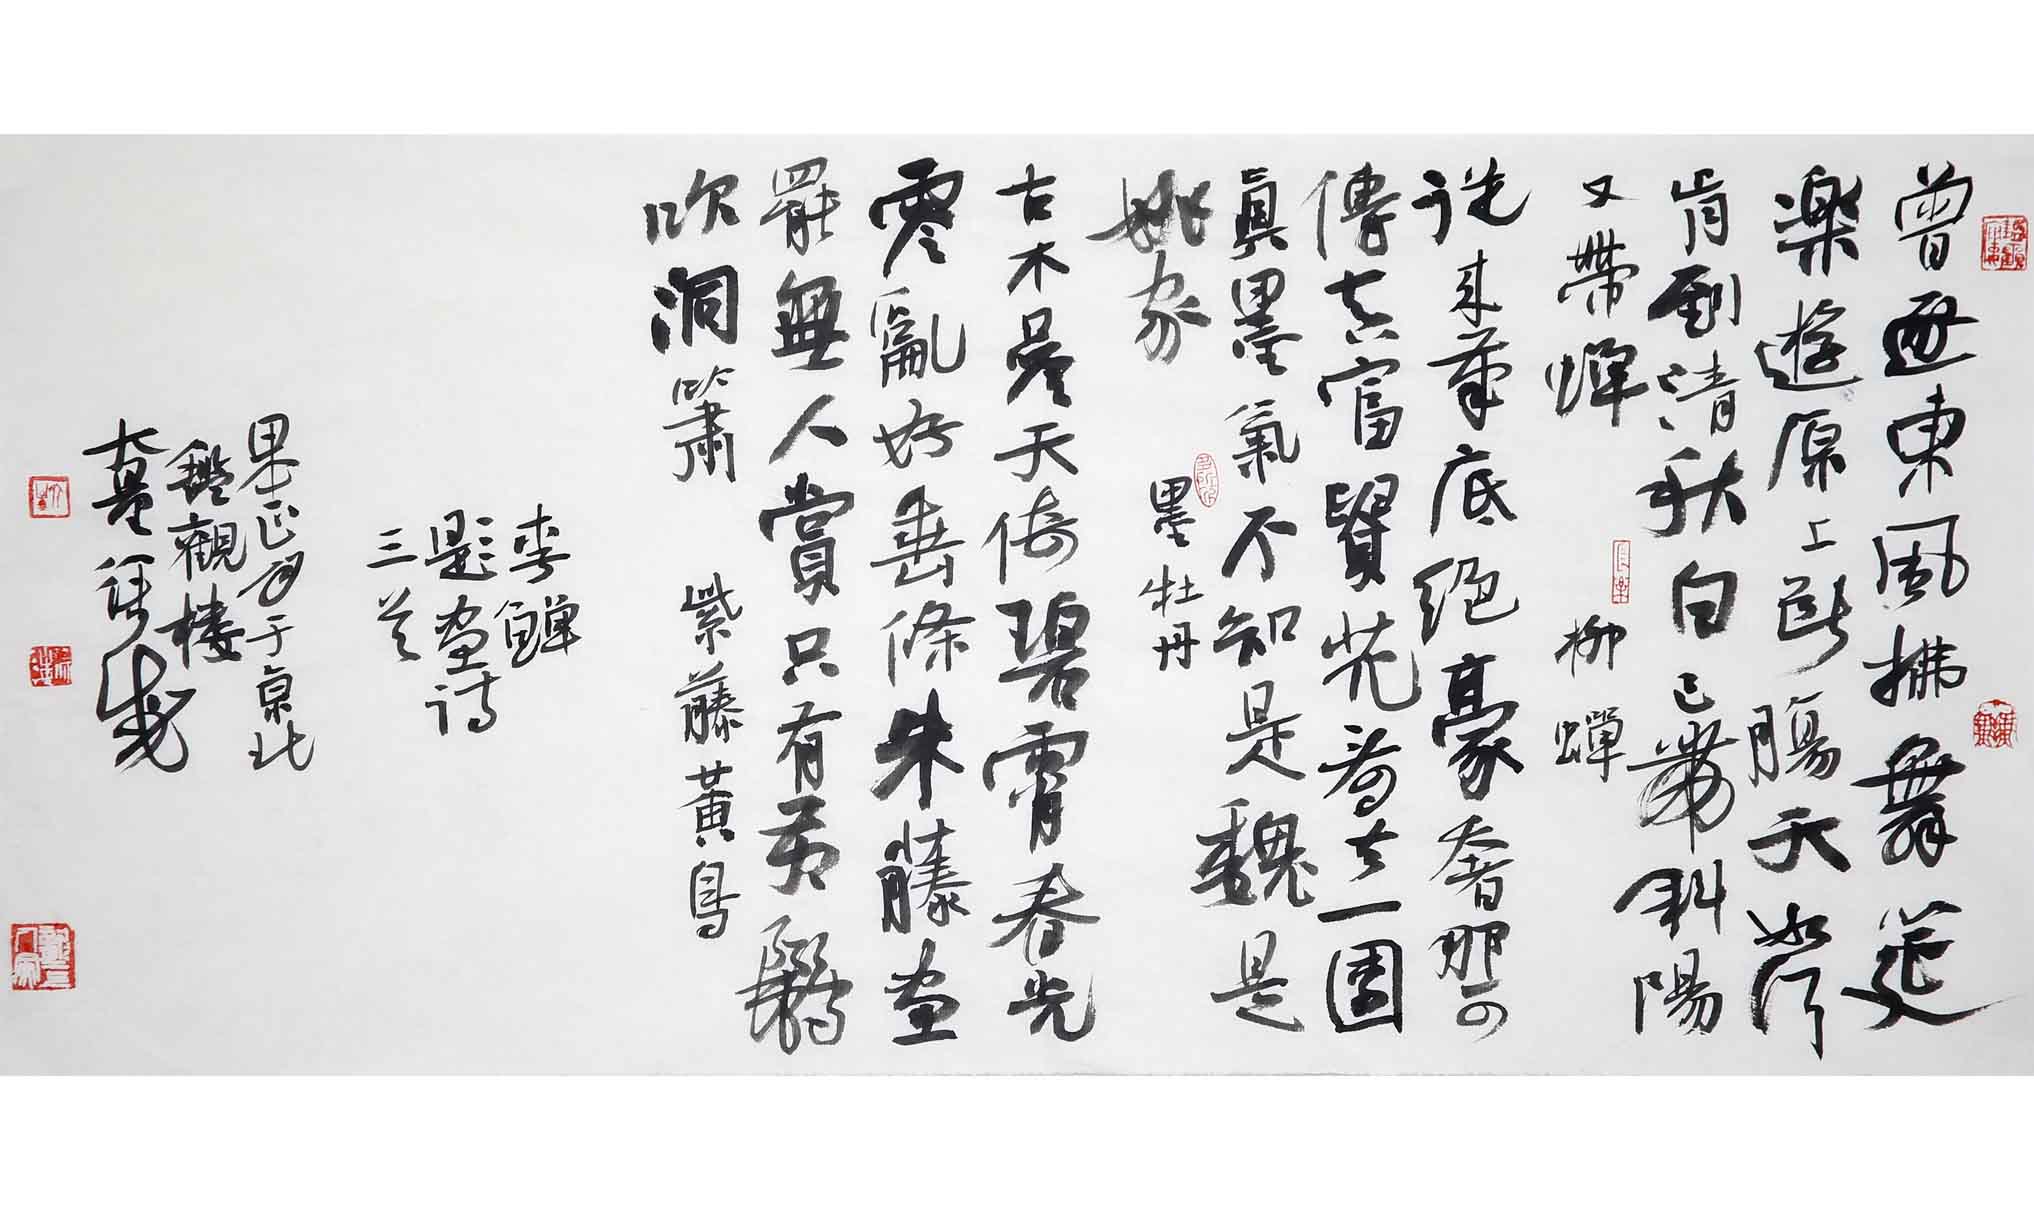 曾逐東風拂舞筵
樂遊原上斷腸天如何
肯到清秋日已帶斜陽
又帶蟬
柳蟬
說來筆底絕豪奢那可
傳真富貴花為其一團
真墨氣不知是魏是
姚家
墨牡丹
古木參天倚碧霄春光
零亂好垂條朱藤畫
罷無人賞只有黃鸝
吹洞簫
紫藤黃鳥
李鱓
題畫詩
三首
于京北
鑑觀樓